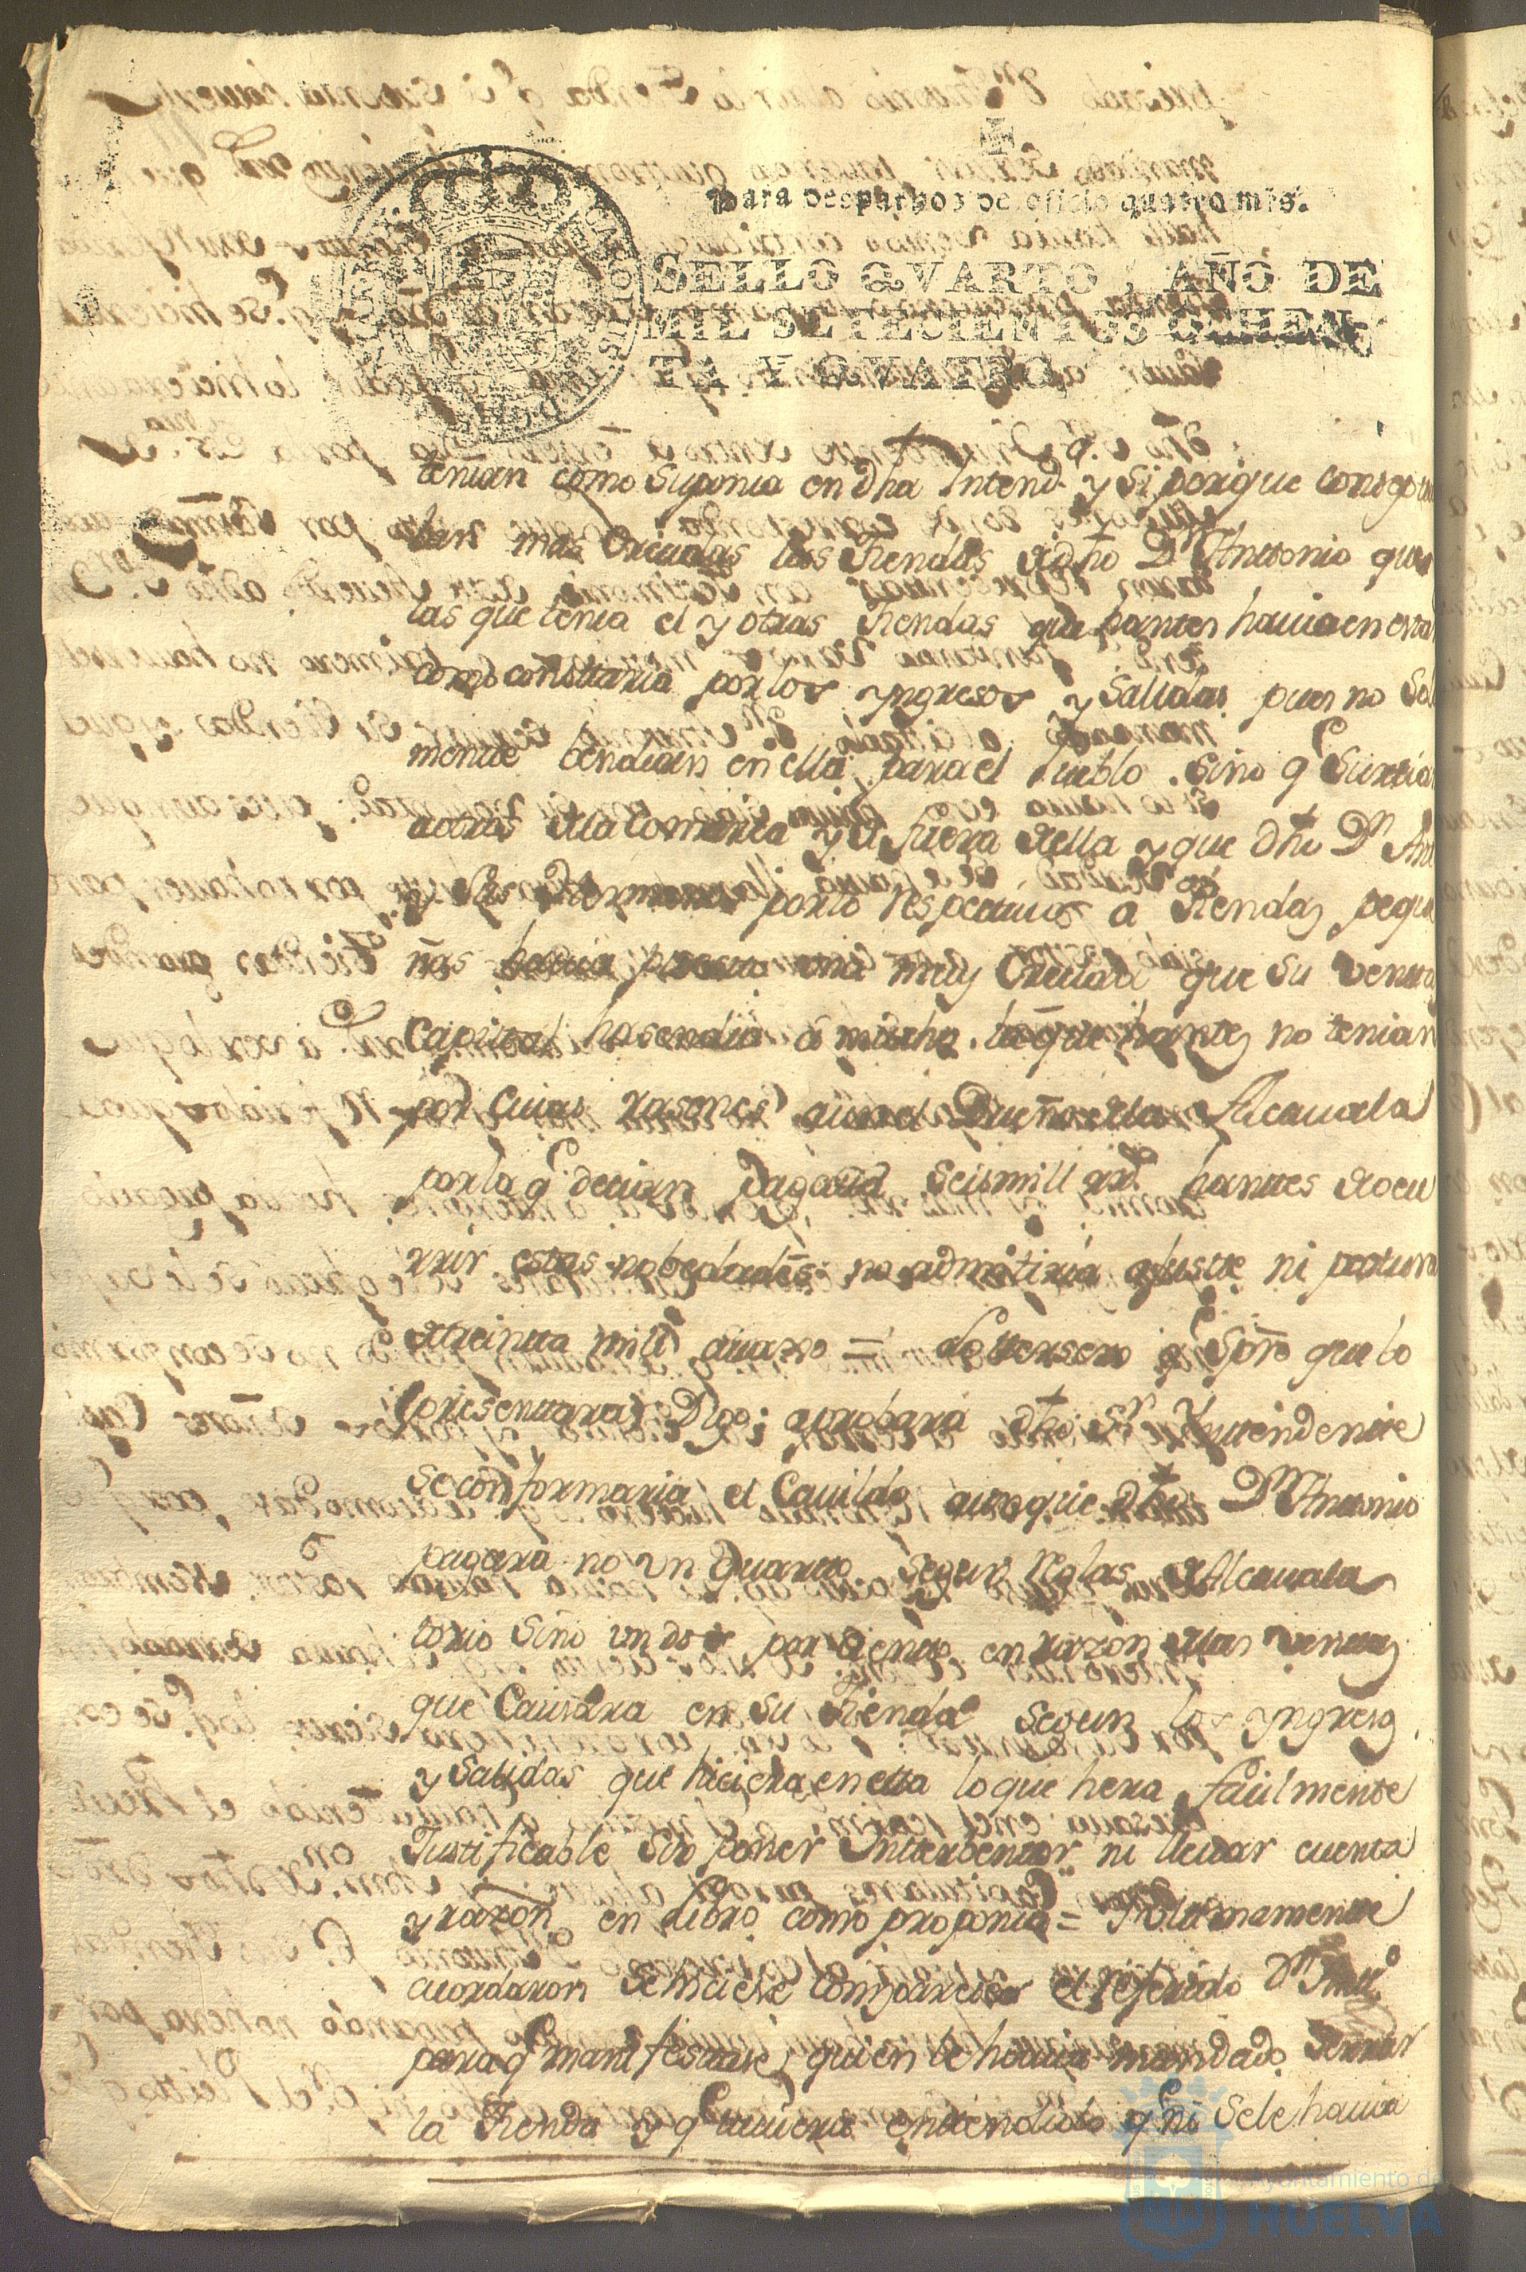 Para despachos de oficio quatro mrs.
SELLO QVARTO, AÑO DE
MIL SETECIENTOS OCHEN-
TA Y QVATRO.
tenian como suponia en dha Intend.ª y si porque
mas Crecidas las tiendas de dho Dn Antonio que
las que tenia el y otras tiendas que hantes havia en esta
como consttaria por los yngresos y Salidas pues no Sola
mente bendian en ella para el Pueblo sino q Surtia
a otras de la Comarca y de fuera de ella y que dho Dn Antt
y sus Hermanos por lo respectivo a tiendas peque
ñas havia puesto una muy Crecida que su venta
Capital hasendia a mucho lo que hantes no tenian
por Cuias rasones aun el Dueño de la Alcauala
por la q decian pagaria Seis mill rrs hanttes de ocu
rrir estas nobedades no admitiria ajuste ni postura
de treinta mill quarto = lo tersero q Spre que lo
presenttara Dho; aprobara dho Sr Yntendente
Se conformaria el Cauildo aunque dho Dn Antonio
pagara no un quarto segun Reglas de Alcauala
torio sino un dos por ciento en razon de las ventas
que Causara en su tienda segun los yngresos
y Salidas que hiciera en ella lo que hera facilmente
Justificable sin poner Interbentor ni lleuar cuenta
y razon en Libro como proponia = Ultimamente
acordaron Se hiciese Comparecer el referido Dn Antto
para q manifestase, quien le havia mandado serrar
la tienda y q tuuiera entendido q ni Se le havia
Ayuntamiento de
HUELVA